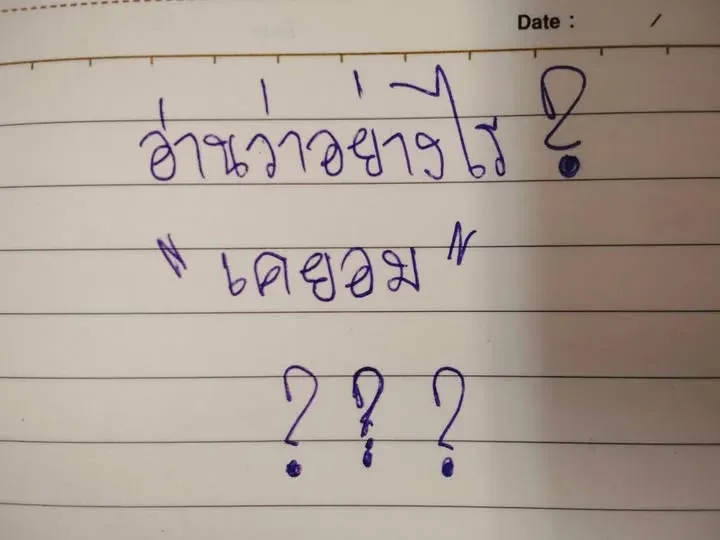 Date : /
อ่านว่าอย่างไร ?
" เคยอม "
? ? ?